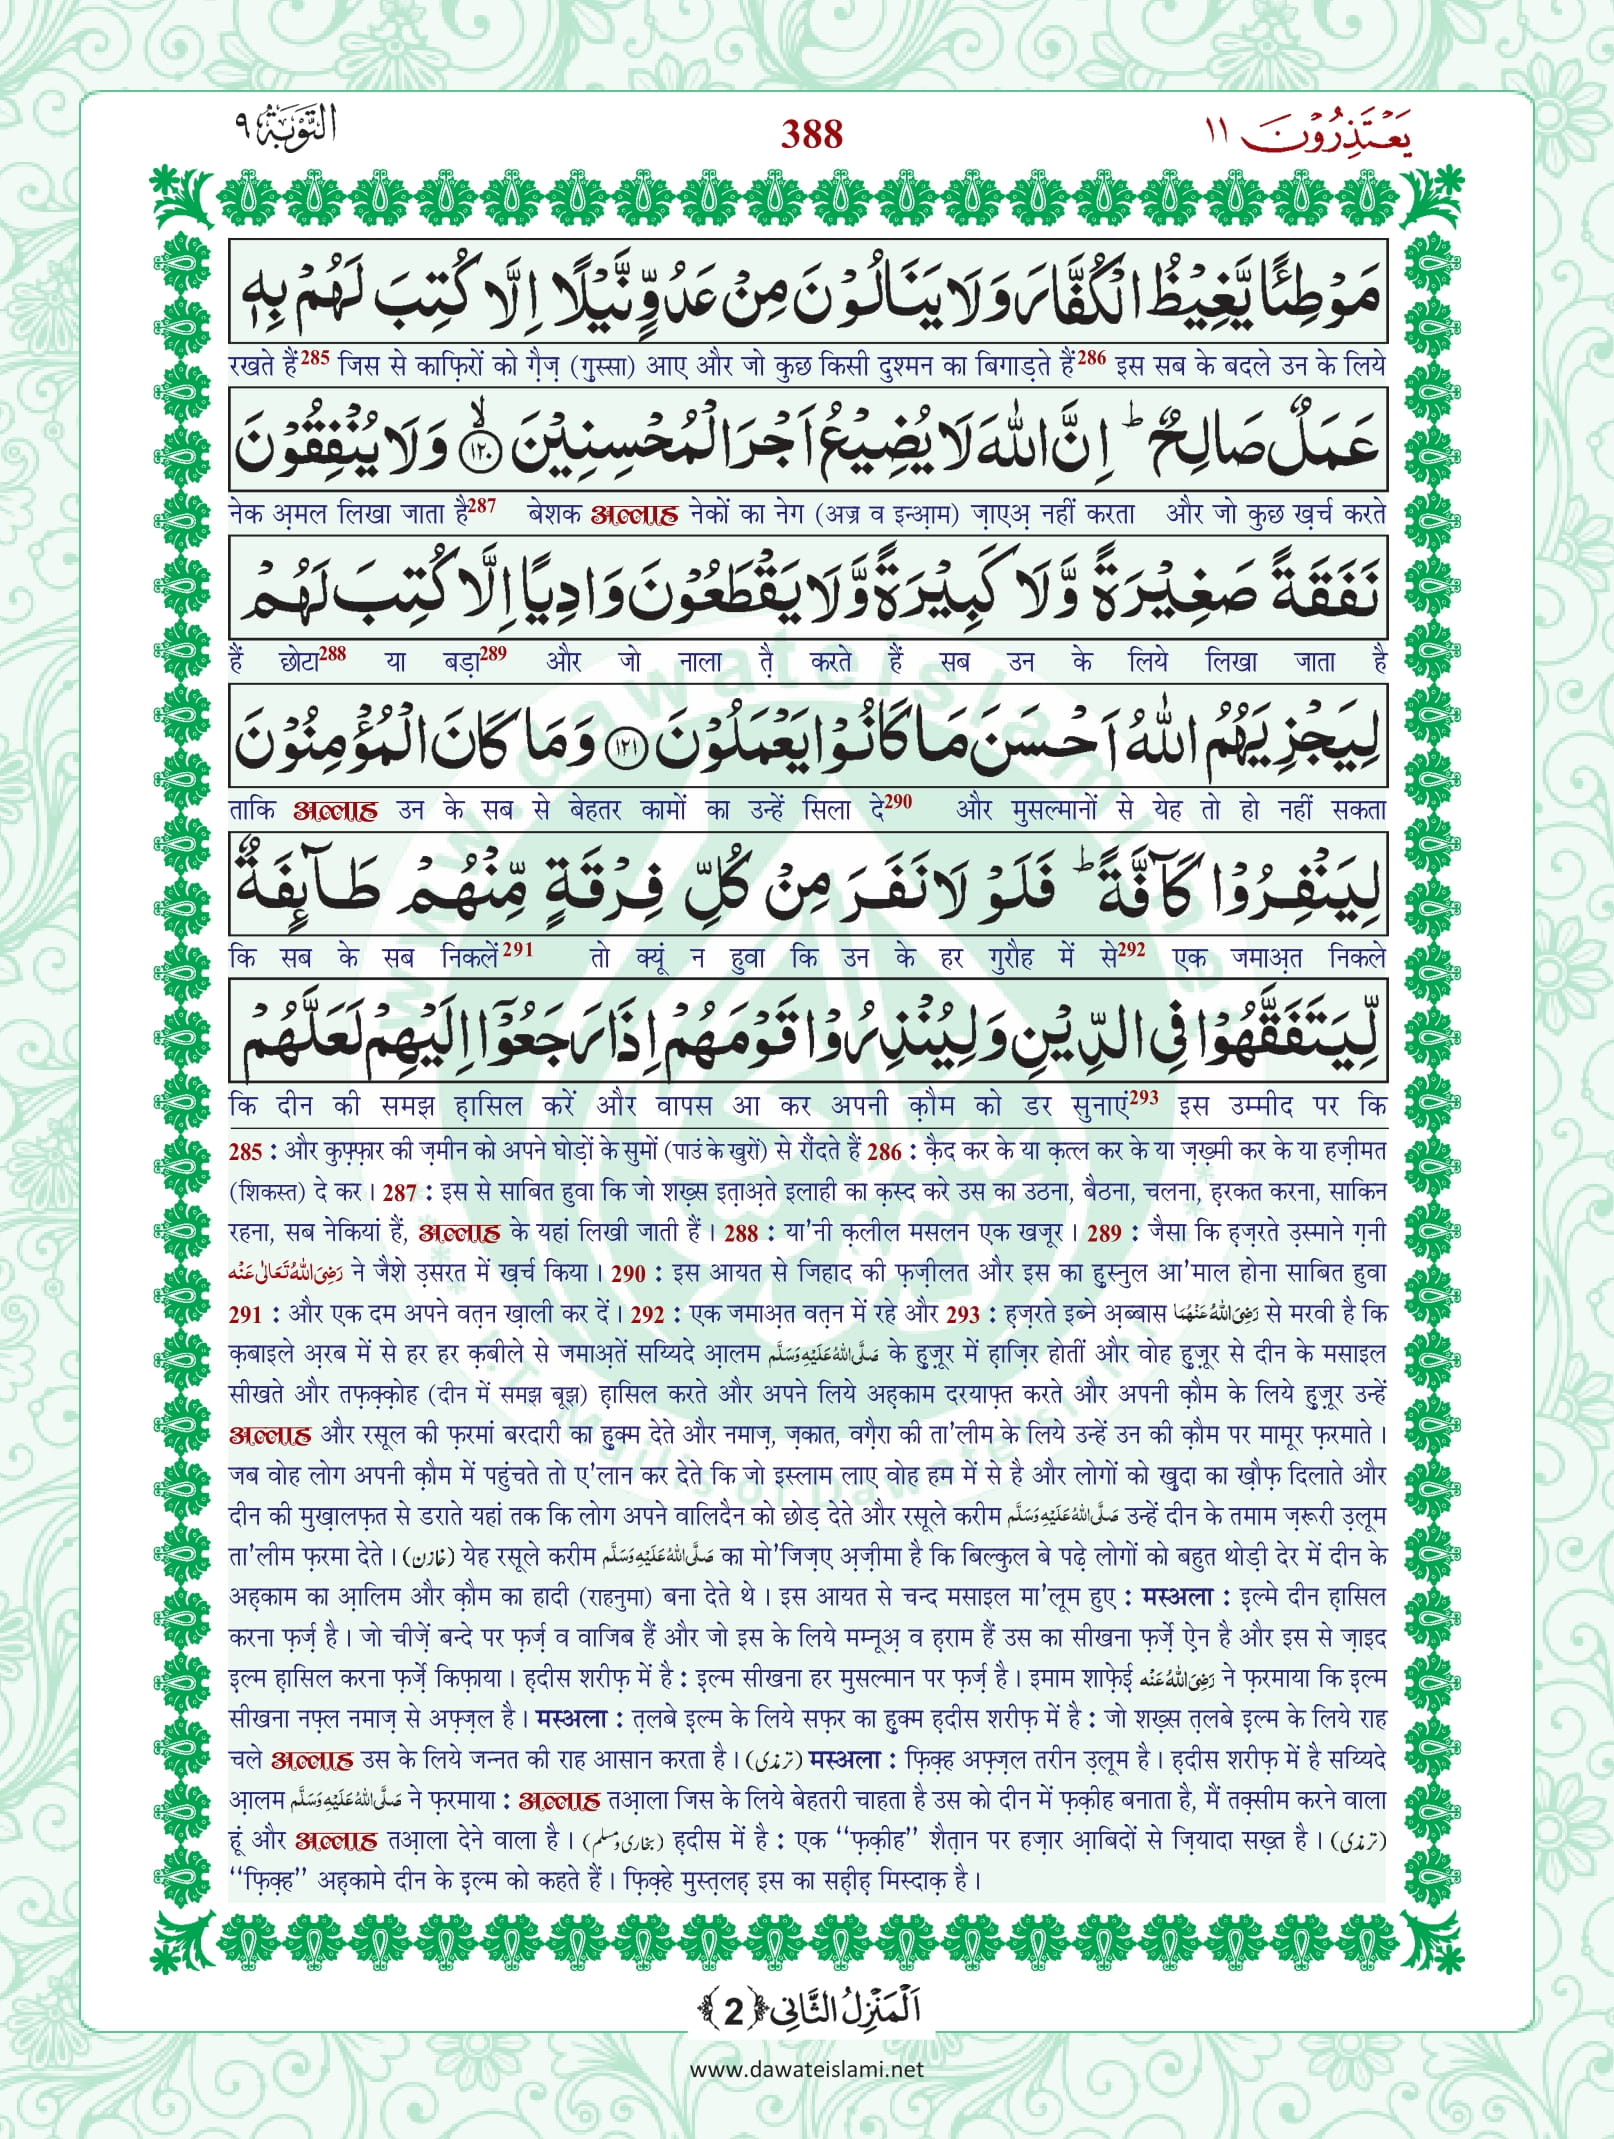 التَّوْبَة ٩
388
يَعْتَذِرُوْنَ ١١
مَوْطِئًا يَّغِيْظُ الْكُفَّارَ وَلَا يَنَالُوْنَ مِنْ عَدُوٍّ نَّيْلًا اِلَّا كُتِبَ لَهُمْ بِهٖ
रखते हैं285 जिस से काफ़िरों को ग़ैज़ (ग़ुस्सा) आए और जो कुछ किसी दुश्मन का बिगाड़ते हैं286 इस सब के बदले उन के लिये
عَمَلٌ صَالِحٌ ؕ اِنَّ اللّٰهَ لَا يُضِيْعُ اَجْرَ الْمُحْسِنِيْنَ ۙ﴿۱۲۰﴾ وَلَا يُنْفِقُوْنَ
नेक अ़मल लिखा जाता है287 बेशक अल्लाह नेकों का नेग (अज्र व इन्आ़म) ज़ाएअ़ नहीं करता और जो कुछ ख़र्च करते
نَفَقَةً صَغِيْرَةً وَّلَا كَبِيْرَةً وَّلَا يَقْطَعُوْنَ وَادِيًا اِلَّا كُتِبَ لَهُمْ
हैं छोटा288 या बड़ा289 और जो नाला त़ै करते हैं सब उन के लिये लिखा जाता है
لِيَجْزِيَهُمُ اللّٰهُ اَحْسَنَ مَا كَانُوْا يَعْمَلُوْنَ ﴿۱۲۱﴾ وَمَا كَانَ الْمُؤْمِنُوْنَ
ताकि अल्लाह उन के सब से बेहतर कामों का उन्हें सिला दे290 और मुसल्मानों से येह तो हो नहीं सकता
لِيَنْفِرُوْا كَآفَّةً ؕ فَلَوْ لَا نَفَرَ مِنْ كُلِّ فِرْقَةٍ مِّنْهُمْ طَآىِٕفَةٌ
कि सब के सब निकलें291 तो क्यूं न हुवा कि उन के हर गुरौह में से292 एक जमाअ़त निकले
لِّيَتَفَقَّهُوْا فِی الدِّيْنِ وَلِيُنْذِرُوْا قَوْمَهُمْ اِذَا رَجَعُوْۤا اِلَيْهِمْ لَعَلَّهُمْ
कि दीन की समझ ह़ासिल करें और वापस आ कर अपनी क़ौम को डर सुनाएं293 इस उम्मीद पर कि
285 : और कुफ़्फ़ार की ज़मीन को अपने घोड़ों के सुमों (पाउं के खुरों) से रौंदते हैं 286 : क़ैद कर के या क़त्ल कर के या ज़ख़्मी कर के या हज़ीमत
(शिकस्त) दे कर । 287 : इस से साबित हुवा कि जो शख़्स इत़ाअ़ते इलाही का क़स्द करे उस का उठना, बैठना, चलना, ह़रकत करना, साकिन
रहना, सब नेकियां हैं, अल्लाह के यहां लिखी जाती हैं । 288 : या'नी क़लील मसलन एक खजूर । 289 : जैसा कि ह़ज़रते उ़स्माने ग़नी
رَضِیَ اللّٰهُ تَعَالٰی عَنْه ने जैशे उ़सरत में ख़र्च किया । 290 : इस आयत से जिहाद की फ़ज़ीलत और इस का ह़ुस्नुल आ'माल होना साबित हुवा
291 : और एक दम अपने वत़न ख़ाली कर दें । 292 : एक जमाअ़त वत़न में रहे और 293 : ह़ज़रते इब्ने अ़ब्बास رَضِیَ اللّٰهُ عَنْهُمَا से मरवी है कि
क़बाइले अ़रब में से हर हर क़बीले से जमाअ़तें सय्यिदे आ़लम صَلَّی اللّٰهُ عَلَيْهِ وَسَلَّم के ह़ुज़ूर में ह़ाज़िर होतीं और वोह ह़ुज़ूर से दीन के मसाइल
सीखते और तफ़क़्क़ोह (दीन में समझ बूझ) ह़ासिल करते और अपने लिये अह़काम दरयाफ़्त करते और अपनी क़ौम के लिये ह़ुज़ूर उन्हें
अल्लाह और रसूल की फ़रमां बरदारी का ह़ुक्म देते और नमाज़, ज़कात, वग़ैरा की ता'लीम के लिये उन्हें उन की क़ौम पर मामूर फ़रमाते ।
जब वोह लोग अपनी क़ौम में पहुंचते तो ए'लान कर देते कि जो इस्लाम लाए वोह हम में से है और लोगों को खुदा का ख़ौफ़ दिलाते और
दीन की मुख़ालफ़त से डराते यहां तक कि लोग अपने वालिदैन को छोड़ देते और रसूले करीम صَلَّی اللّٰهُ عَلَيْهِ وَسَلَّم उन्हें दीन के तमाम ज़रूरी उ़लूम
ता'लीम फ़रमा देते । (خازن) येह रसूले करीम صَلَّی اللّٰهُ عَلَيْهِ وَسَلَّم का मो'जिज़ए अ़ज़ीमा है कि बिल्कुल बे पढ़े लोगों को बहुत थोड़ी देर में दीन के
अह़काम का आ़लिम और क़ौम का हादी (राहनुमा) बना देते थे । इस आयत से चन्द मसाइल मा'लूम हुए : मस्अला : इल्मे दीन ह़ासिल
करना फ़र्ज़ है । जो चीज़ें बन्दे पर फ़र्ज़ व वाजिब हैं और जो इस के लिये मम्नूअ़ व ह़राम हैं उस का सीखना फ़र्ज़े ऐन है और इस से ज़ाइद
इल्म ह़ासिल करना फ़र्ज़े किफ़ाया । ह़दीस शरीफ़ में है : इल्म सीखना हर मुसल्मान पर फ़र्ज़ है । इमाम शाफ़ेई़ رَضِیَ اللّٰهُ عَنْه ने फ़रमाया कि इल्म
सीखना नफ़्ल नमाज़ से अफ़्ज़ल है । मस्अला : त़लबे इल्म के लिये सफ़र का हुक्म ह़दीस शरीफ़ में है : जो शख़्स त़लबे इल्म के लिये राह
चले अल्लाह उस के लिये जन्नत की राह आसान करता है । (ترمذی) मस्अला : फ़िक़्ह अफ़्ज़ल तरीन उ़लूम है । ह़दीस शरीफ़ में है सय्यिदे
आ़लम صَلَّی اللّٰهُ عَلَيْهِ وَسَلَّم ने फ़रमाया : अल्लाह तआ़ला जिस के लिये बेहतरी चाहता है उस को दीन में फ़क़ीह बनाता है, मैं तक़्सीम करने वाला
हूं और अल्लाह तआ़ला देने वाला है । (بخاری و مسلم) ह़दीस में है : एक ‘‘फ़क़ीह’’ शैत़ान पर हज़ार आ़बिदों से ज़ियादा सख़्त है । (ترمذی)
‘‘फ़िक़्ह’’ अह़कामे दीन के इ़ल्म को कहते हैं । फ़िक़्हे मुस्त़लह़ इस का सह़ीह़ मिस्दाक़ है ।
اَلْمَنْزِلُ الثَّانِی ﴿2﴾
www.dawateislami.net